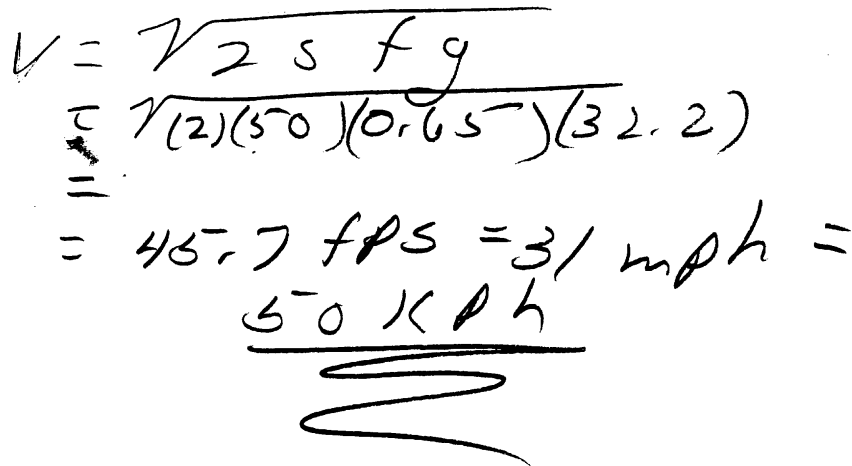 V = √2 s f g
= √(2)(50)(0.65)(32.2)
=
= 45.7 fps = 31 mph =
50 kph